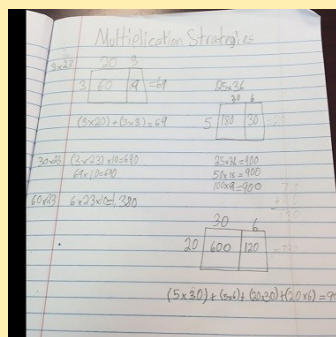 Multiplication Strategies
3x23
20 3
3 60 9 =69
(3x20)+(3x3)=69
25x36
30 6
5 180 30
30x23 (3x23)x10=690
69x10=690
60x23 6x23x10=1,380
25x36=900
50x18=900
100x9=900
30 6
20 600 120
(5x30)+(5x6)+(20x30)+(20x6)=9